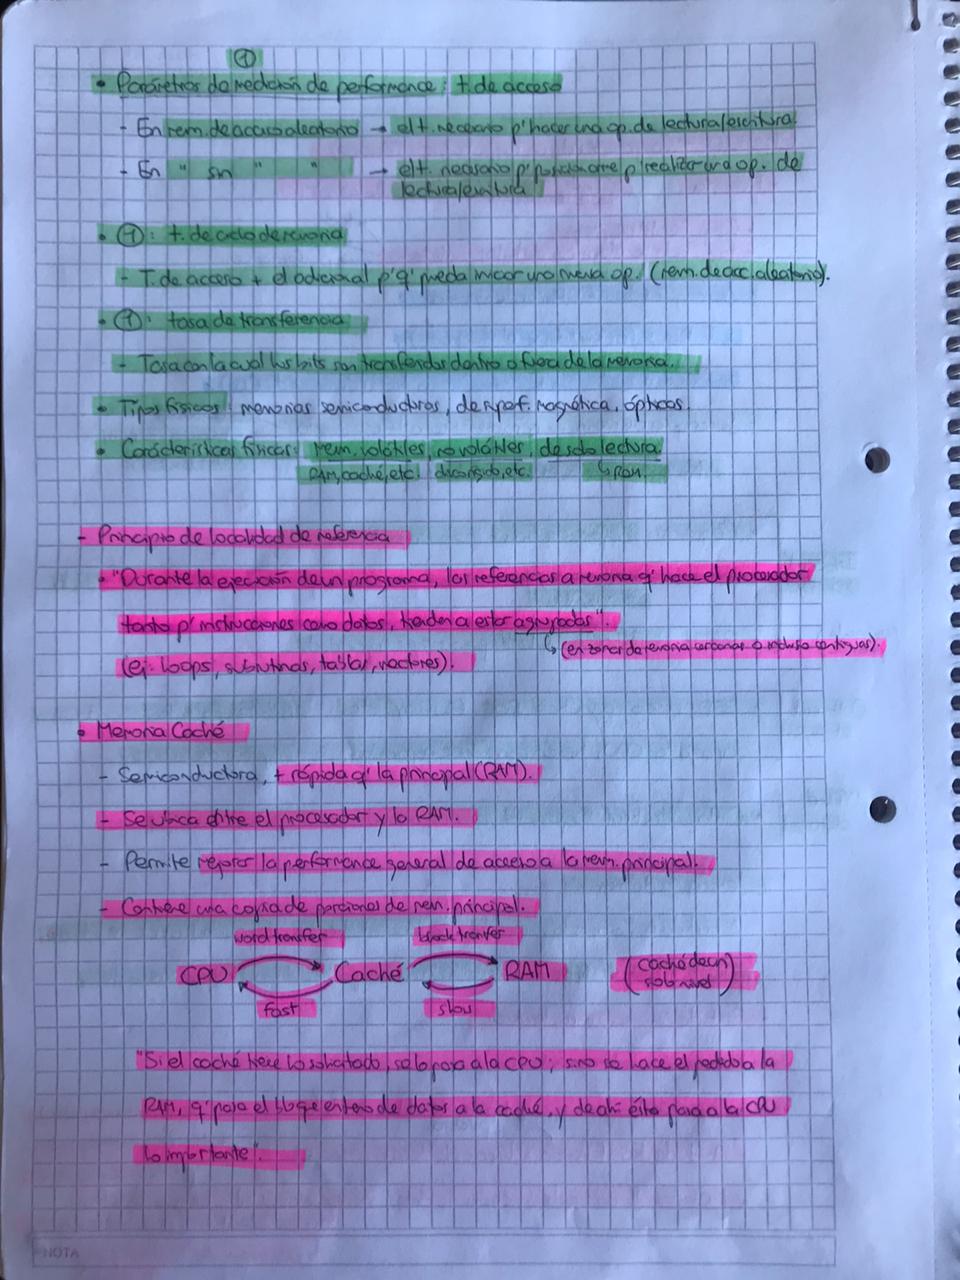 ①
• Parámetros de medición de performance: t. de acceso
- En mem. de acceso aleatorio → el t. necesario p' hacer una op. de lectura/escritura.
- En " sn " " → el t. necesario p' posicionarme p' realizar una op. de
lectura/escritura
• ①: t. de ciclo de memoria
- T. de acceso + el adicional p' q' pueda iniciar una nueva op. (mem. de acc. aleatorio).
• ①: tasa de transferencia
- Tasa con la cual los bits son transferidos dentro o fuera de la memoria.
• Tipos físicos: memorias semiconductoras, de superf. magnética, ópticas.
• Características físicas: mem. volátiles, no volátiles, de solo lectura.
RAM, caché, etc. disco rígido, etc. ↳ ROM.
- Principio de localidad de referencia
• "Durante la ejecución de un programa, las referencias a memoria q' hace el procesador
tanto p' instrucciones como datos, tienden a estar agrupadas".
↳ (en zonas de memoria cercanas o incluso contiguas).
(ej: loops, subrutinas, tablas, vectores).
• Memoria Caché
- Semiconductora, + rápida q' la principal (RAM).
- Se ubica entre el procesador y la RAM.
- Permite mejorar la performance general de acceso a la mem. principal.
- Contiene una copia de porciones de mem. principal.
word transfer block tranfer
CPU Caché RAM (caché de un
solo nivel)
fast slow
"Si el caché tiene lo solicitado, se lo pasa a la CPU; sino se hace el pedido a la
RAM, q' pasa el bloque entero de datos a la caché, y de ahí ésta pasa a la CPU
lo importante".
NOTA